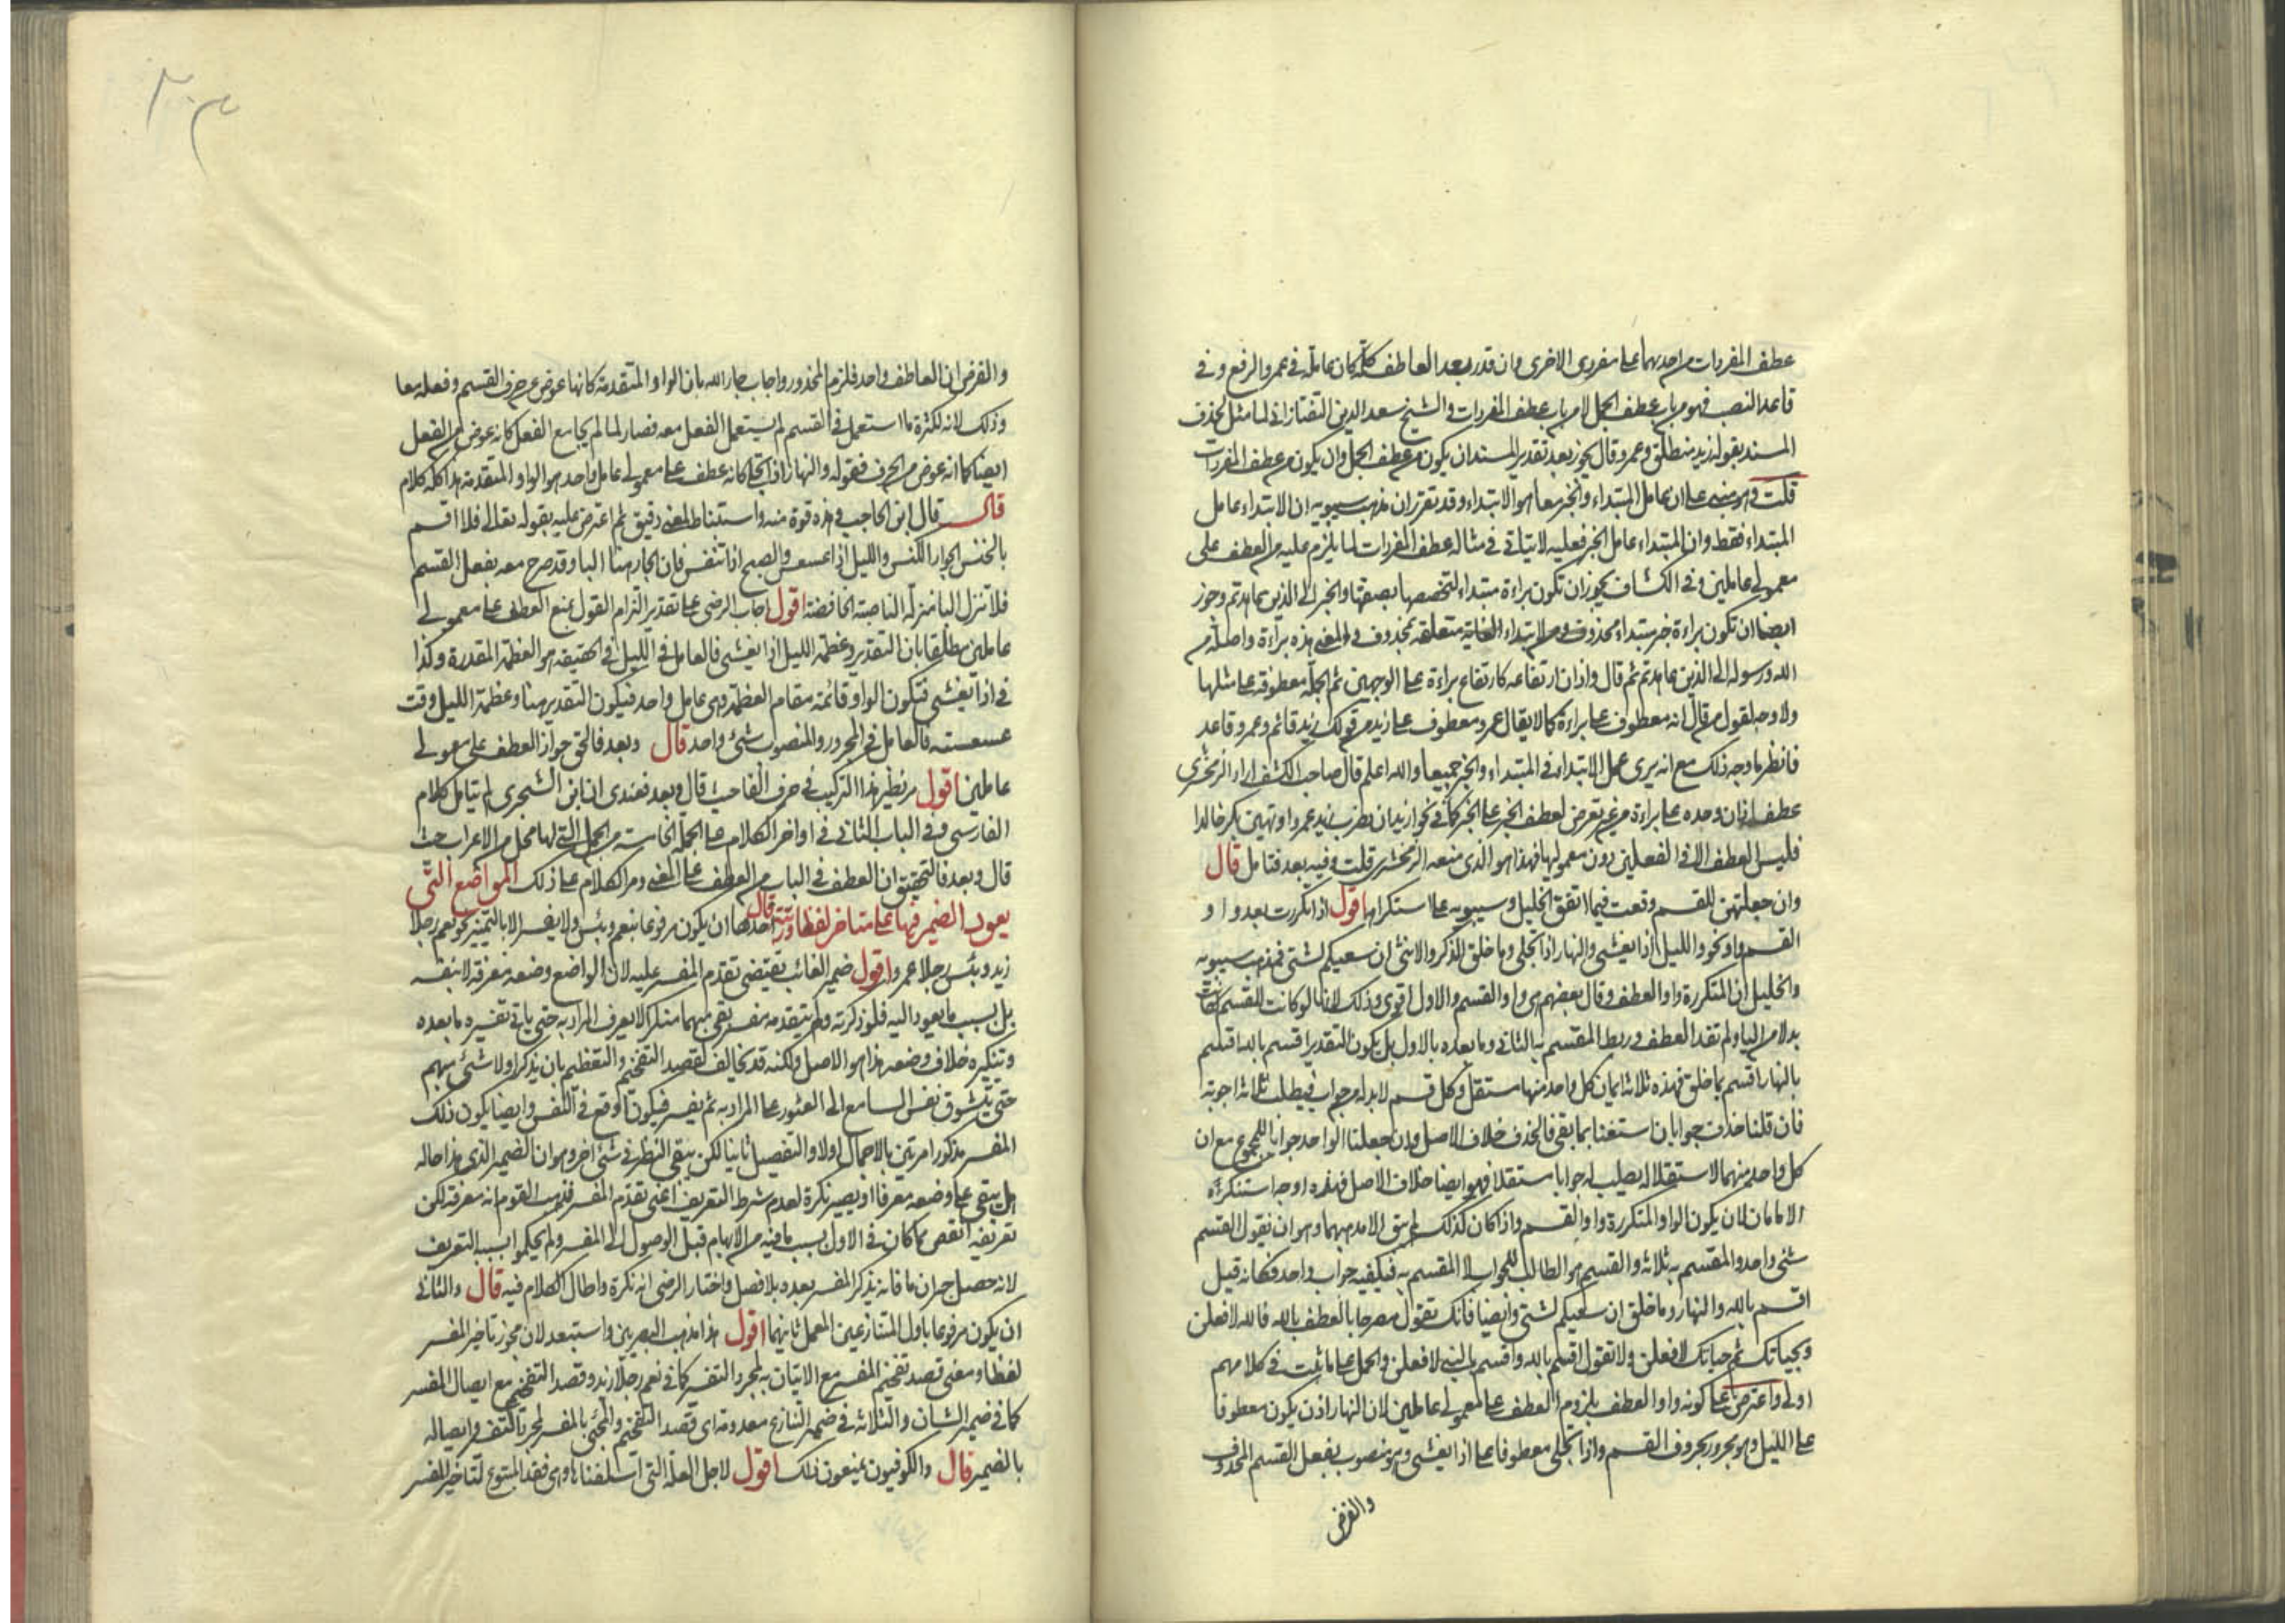 عطف المفردات من احديهما على مفردى الاخرى وان قدر بعد العاطف كلمة كان عاملة فى عمرو الرفع وفى
قاعد النصب فهو من باب عطف الجمل لا من باب عطف المفردات والشيخ سعد الدين التفتازانى لما مثل لحذف
المسند بقوله زيد منطلق وعمرو قال يجوز بعد تقدير المسند ان يكون من عطف الجمل وان يكون من عطف المفردات
قلت وهو مبنى على ان عامل المبتداء والخبر معا هو الابتداء وقد تقرر ان مذهب سيبويه ان الابتداء عامل
المبتداء فقط وان المبتداء عامل الخبر فعليه لا يتاتى فى مثاله عطف المفردات لما يلزم عليه من العطف على
معمولى عاملين وفى الكشاف يجوز ان تكون براءة مبتداء لتخصصها بصفتها والخبر الى الذين عاهدتم وجوز
ايضا ان تكون براءة خبر مبتداء محذوف ومن لابتداء الغاية متعلقة بمحذوف والمعنى هذه براءة واصلة من
الله ورسوله الى الذين عاهدتم ثم قال واذان ارتفاعه كارتفاع براءة على الوجهين ثم الجملة معطوفة على مثلها
ولا وجه لقول من قال انه معطوف على براءة كما لا يقال عمرو معطوف على زيد من قولك زيد قائم وعمرو قاعد
فانظر ما وجه ذلك مع انه يرى عمل الابتداء فى المبتداء والخبر جميعا والله اعلم قال صاحب الكشف اراد الزمخشرى
عطف اذان وحده على براءة من غير تعرض لعطف الخبر على الخبر كما فى نحو اريد ان يضرب زيد عمرا ويهين بكر خالدا
فليس العطف الا فى الفعلين دون معموليها فهذا هو الذى منعه الزمخشرى قلت وفيه بعد فتامل قال
وان جعلتهن للقسم وقعت فيما اتفق الخليل وسيبويه على استكراهه اقول اذا تكررت بعد واو
القسم واو نحو والليل اذا يغشى والنهار اذا تجلى وما خلق الذكر والانثى ان سعيكم لشتى فمذهب سيبويه
والخليل ان المتكررة واو العطف وقال بعضهم هى واو القسم والاول اقوى وذلك لانها لو كانت للقسم لكانت
بدلا من الباء ولم تفد العطف وربط المقسم به الثانى وما بعده بالاول بل يكون التقدير اقسم بالليل اقسم
بالنهار اقسم بما خلق فهذه ثلاثة ايمان كل واحد منها مستقل وكل قسم لا بد له من جواب فيطلب ثلاثة اجوبة
فان قلنا حذف جوابان استغناء بما بقى فالحذف خلاف الاصل وان جعلنا الواحد جوابا للمجموع مع ان
كل واحد منهما لاستقلاله يطلب جوابا مستقلا فهو ايضا خلاف الاصل فهذه اوجه استنكراه
الامامان لان يكون الواو المتكررة واو القسم واذا كان كذلك لم يبق الا احدهما وهو ان نقول القسم
شئ واحد والمقسم به ثلاثة والقسم هو الطالب للجواب لا المقسم به فيكفيه جواب واحد فكانه قيل
اقسم بالليل والنهار وما خلق ان سعيكم لشتى وايضا فانك تقول مصرحا بالعطف بالله فالله لافعلن
وبحياتك ثم حياتك لافعلن ولا تقول اقسم بالله واقسم بالنبى لافعلن والحمل على ما ثبت فى كلامهم
اولى واعترض على كونه واو العطف بلزوم العطف على معمولى عاملين لان النهار اذن يكون معطوفا
على الليل وهو مجرور بحروف القسم واذا تجلى معطوفا على اذا يغشى وهو منصوب بفعل القسم المحذوف
والفرض
والفرض ان العاطف واحد فلزم المحذور واجاب جار الله بان الواو المتقدمة كانها عوض عن حرف القسم وفعله معا
وذلك لانه لكثرة ما استعمل فى القسم لم يستعمل الفعل معه فصار لما لم يجامع الفعل كانه عوض من الفعل
ايضا كما انه عوض من الحرف فقوله والنهار اذا تجلى كانه عطف على معمولى عامل واحد هو الواو المتقدمة هذا كله كلام
قال قال ابن الحاجب وهذه قوة منه واستنباط لمعنى دقيق ثم اعترض عليه بقوله تعالى فلا اقسم
بالخنس الجوار الكنس والليل اذا عسعس والصبح اذا تنفس فان الجار هنا الباء وقد صرح معه بفعل القسم
فلا تنزل الباء منزلة الناصبة الخافضة اقول اجاب الرضى على تقدير التزام القول بمنع العطف على معمولى
عاملين مطلقا بان التقدير وعظمة الليل اذا يغشى فالعامل فى الليل فى الحقيقة هو العظمة المقدرة وكذا
فى اذا يغشى فتكون الواو قائمة مقام العظمة وهى عامل واحد فيكون التقدير هنا وعظمة الليل وقت
عسعسته فالعامل فى المجرور والمنصوب شئ واحد قال وبعد فالحق جواز العطف على معمولى
عاملين اقول مر نظير هذا التركيب فى حرف الفا حيث قال وبعد فعندى ان ابن الشجرى لم يتامل كلام
الفارسى وفى الباب الثانى فى اواخر الكلام على الجملة الخامسة من الجمل التى لها محل من الاعراب حيث
قال وبعد فالتحقيق ان العطف فى الباب من العطف على المعنى ومر الكلام على ذلك المواضع التى
يعود الضمير فيها على متاخر لفظا ورتبة قال احدها ان يكون مرفوعا بنعم وبئس ولا يفسر الا بالتمييز نحو نعم رجلا
زيد وبئس رجلا عمرو اقول ضمير الغائب يقتضى تقدم المفسر عليه لان الواضع وضعه معرفة لا بنفسه
بل بسبب ما يعود اليه فلو ذكرته ولم يتقدمه مفسر بقى مبهما منكرا لا يعرف المراد به حتى ياتى تفسيره ما بعده
وتنكيره خلاف وضعه هذا هو الاصل ولكنه قد يخالف لقصد التفخيم والتعظيم بان يذكر اولا شئ مبهم
حتى يتشوق نفس السامع الى العثور على المراد به ثم يفسر فيكون اوقع فى النفس وايضا يكون ذلك
المفسر مذكورا مرتين بالاجمال اولا والتفصيل ثانيا لكن يبقى النظر فى شئ اخر وهو ان الضمير الذى هذا حاله
هل يبقى على وضعه معرفا او يصير نكرة لعدم شرط التعريف اعنى تقدم المفسر فذهب القوم انه معرفة لكن
تعريفه انقص مما كان فى الاول بسبب ما فيه من الابهام قبل الوصول الى المفسر ولم يحكموا بسبب التعريف
لانه حصل جبران ما فاته بذكر المفسر بعده بلا فصل واختار الرضى انه نكرة واطال الكلام فيه قال والثانى
ان يكون مرفوعا باول المتنازعين المعمل ثانيهما اقول هذا مذهب البصريين واستبعد لان مجوز تاخير المفسر
لفظا ومعنى قصد تفخيم المفسر مع الاتيان به لمجرد التفسير كما فى نعم رجلا زيد وقصد التفخيم مع ايصال المفسر
كما فى ضمير الشان والثلاثة فى ضمير التنازع معدومة اى قصد التفخيم والمجئ بالمفسر لمجرد التفسير وايصاله
بالضمير قال والكوفيون يمنعون ذلك اقول لاجل العلة التى اسلفناها وهى فقد المسوغ لتاخير المفسر